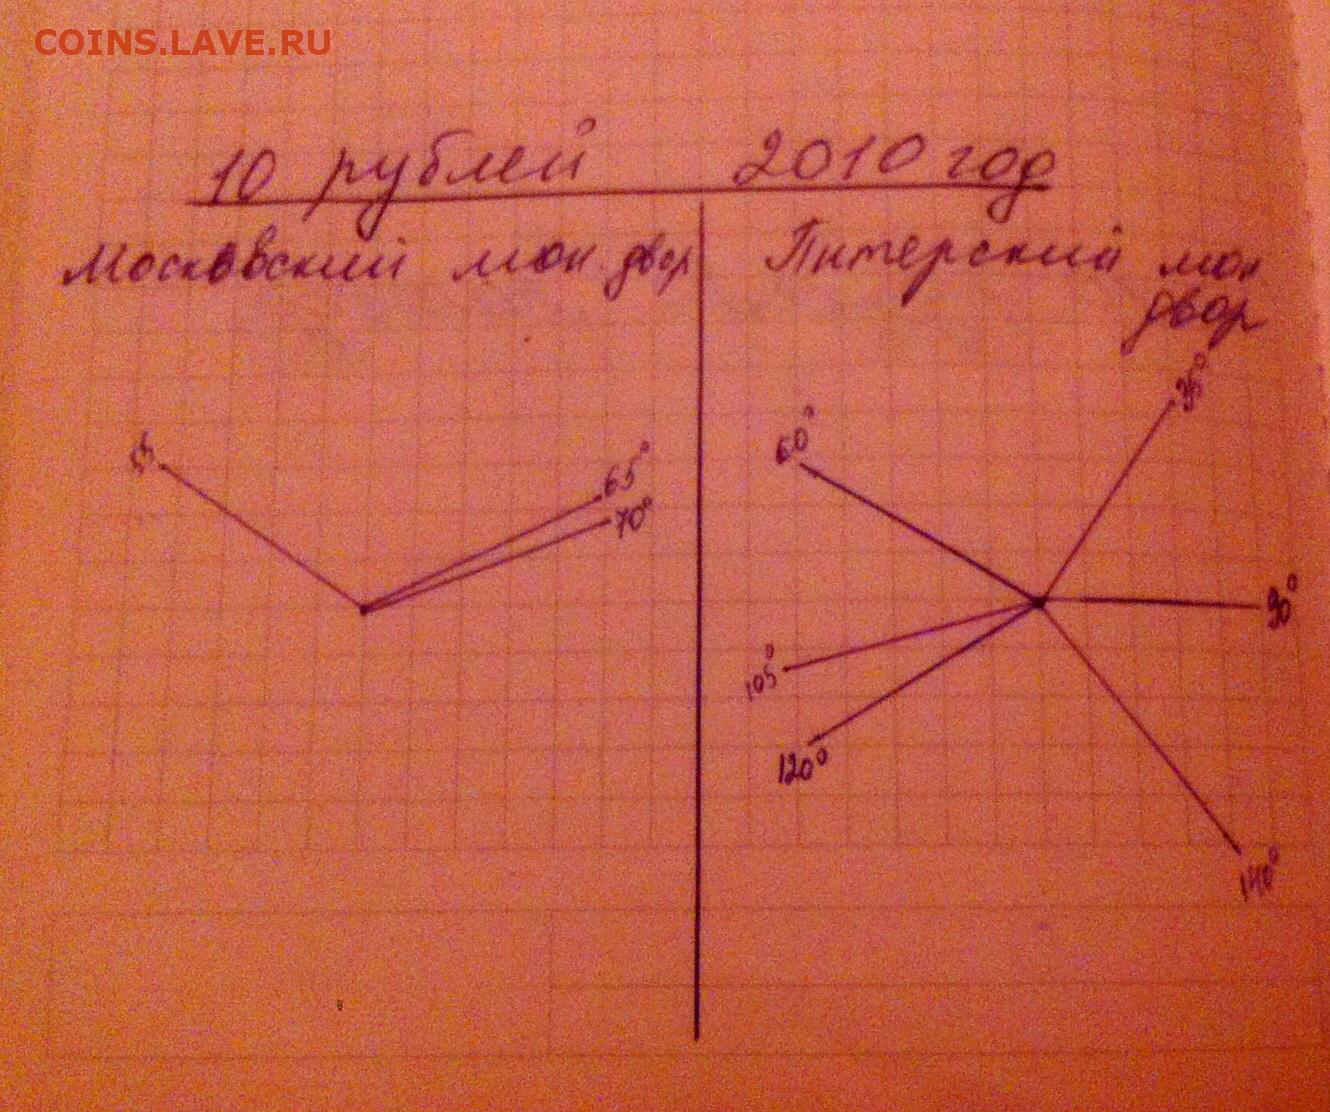 COINS.LAVE.RU
10 рублей 2010 год
Москввский мон. двор
Питерский мон
двор
65°
70°
60°
90°
105°
120°
140°